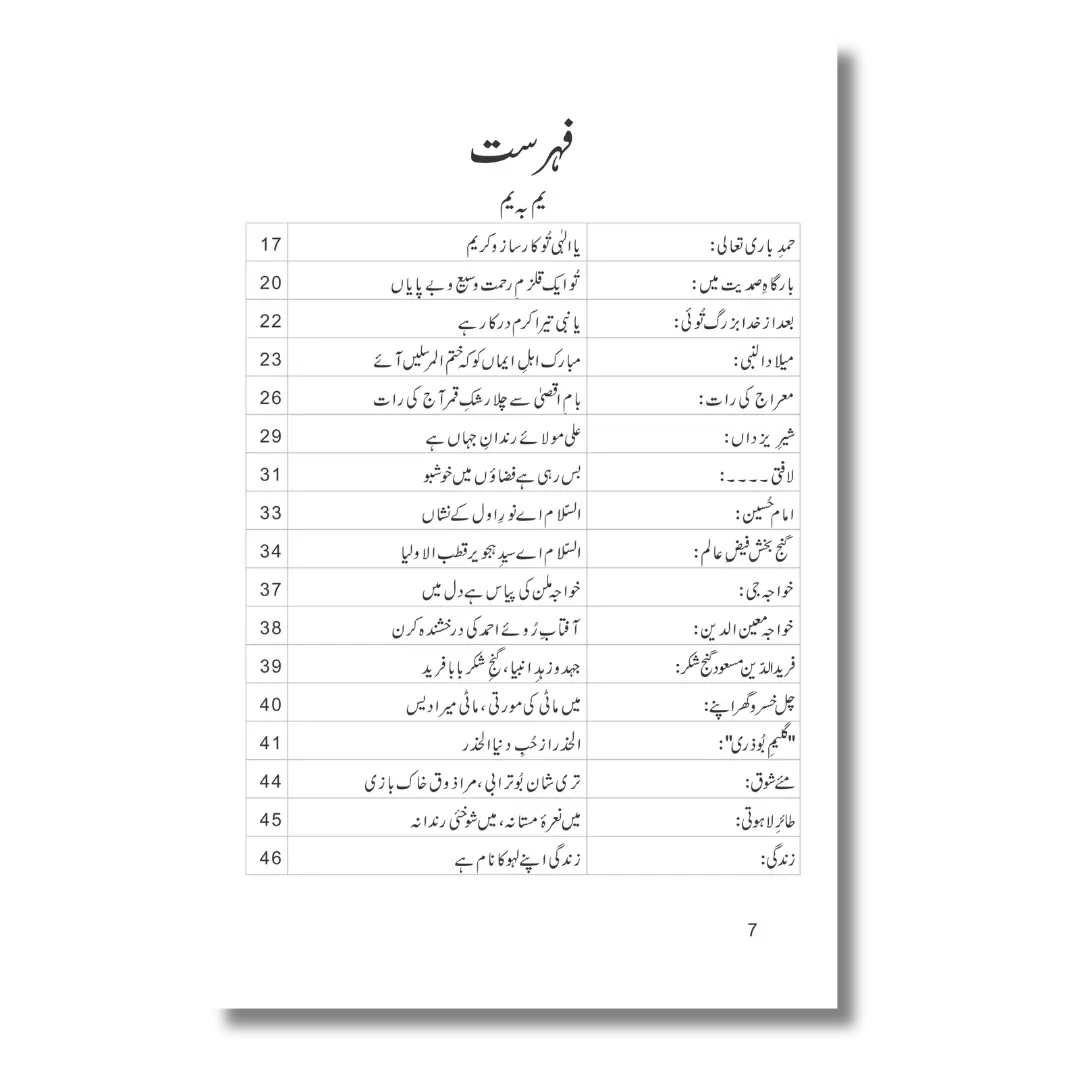 فہرست
یم بہ یم
حمدِ باری تعالی: یا الٰہی تُو کارساز و کریم 17
بارگاہِ صمدیت میں: تُو ایک قلزمِ رحمت وسیع و بے پایاں 20
بعد از خدا بزرگ تُوئی: یا نبی تیرا کرم درکار ہے 22
میلاد النبی: مبارک اہلِ ایماں کو کہ ختم المرسلیں آئے 23
معراج کی رات: بامِ اقصٰی سے چلا رشکِ قمر آج کی رات 26
شیرِ یزداں: علی مولائے رندانِ جہاں ہے 29
لافتی ۔۔۔۔: بس رہی ہے فضاؤں میں خوشبو 31
امام حُسین: السّلام اے نورِ اول کے نشاں 33
گنج بخش فیضِ عالم: السّلام اے سیدِ ہجویر قطب الاولیا 34
خواجہ جی: خواجہ ملن کی پیاس ہے دل میں 37
خواجہ معین الدین: آفتابِ رُوئے احمد کی درخشندہ کرن 38
فرید الدّین مسعود گنج شکر: جہد و زہدِ انبیا، گنجِ شکر بابا فرید 39
چل خسرو گھر اپنے: میں ماٹی کی مورتی، ماٹی میرا دیس 40
"گلیمِ بُوذری": الحذر از حُبِ دنیا الحذر 41
مئے شوق: تری شان بُوترابی، مرا ذوق خاک بازی 44
طائرِ لاہوتی: میں نعرۂ مستانہ، میں شوخئی رندانہ 45
زندگی: زندگی اپنے لہو کا نام ہے 46
7